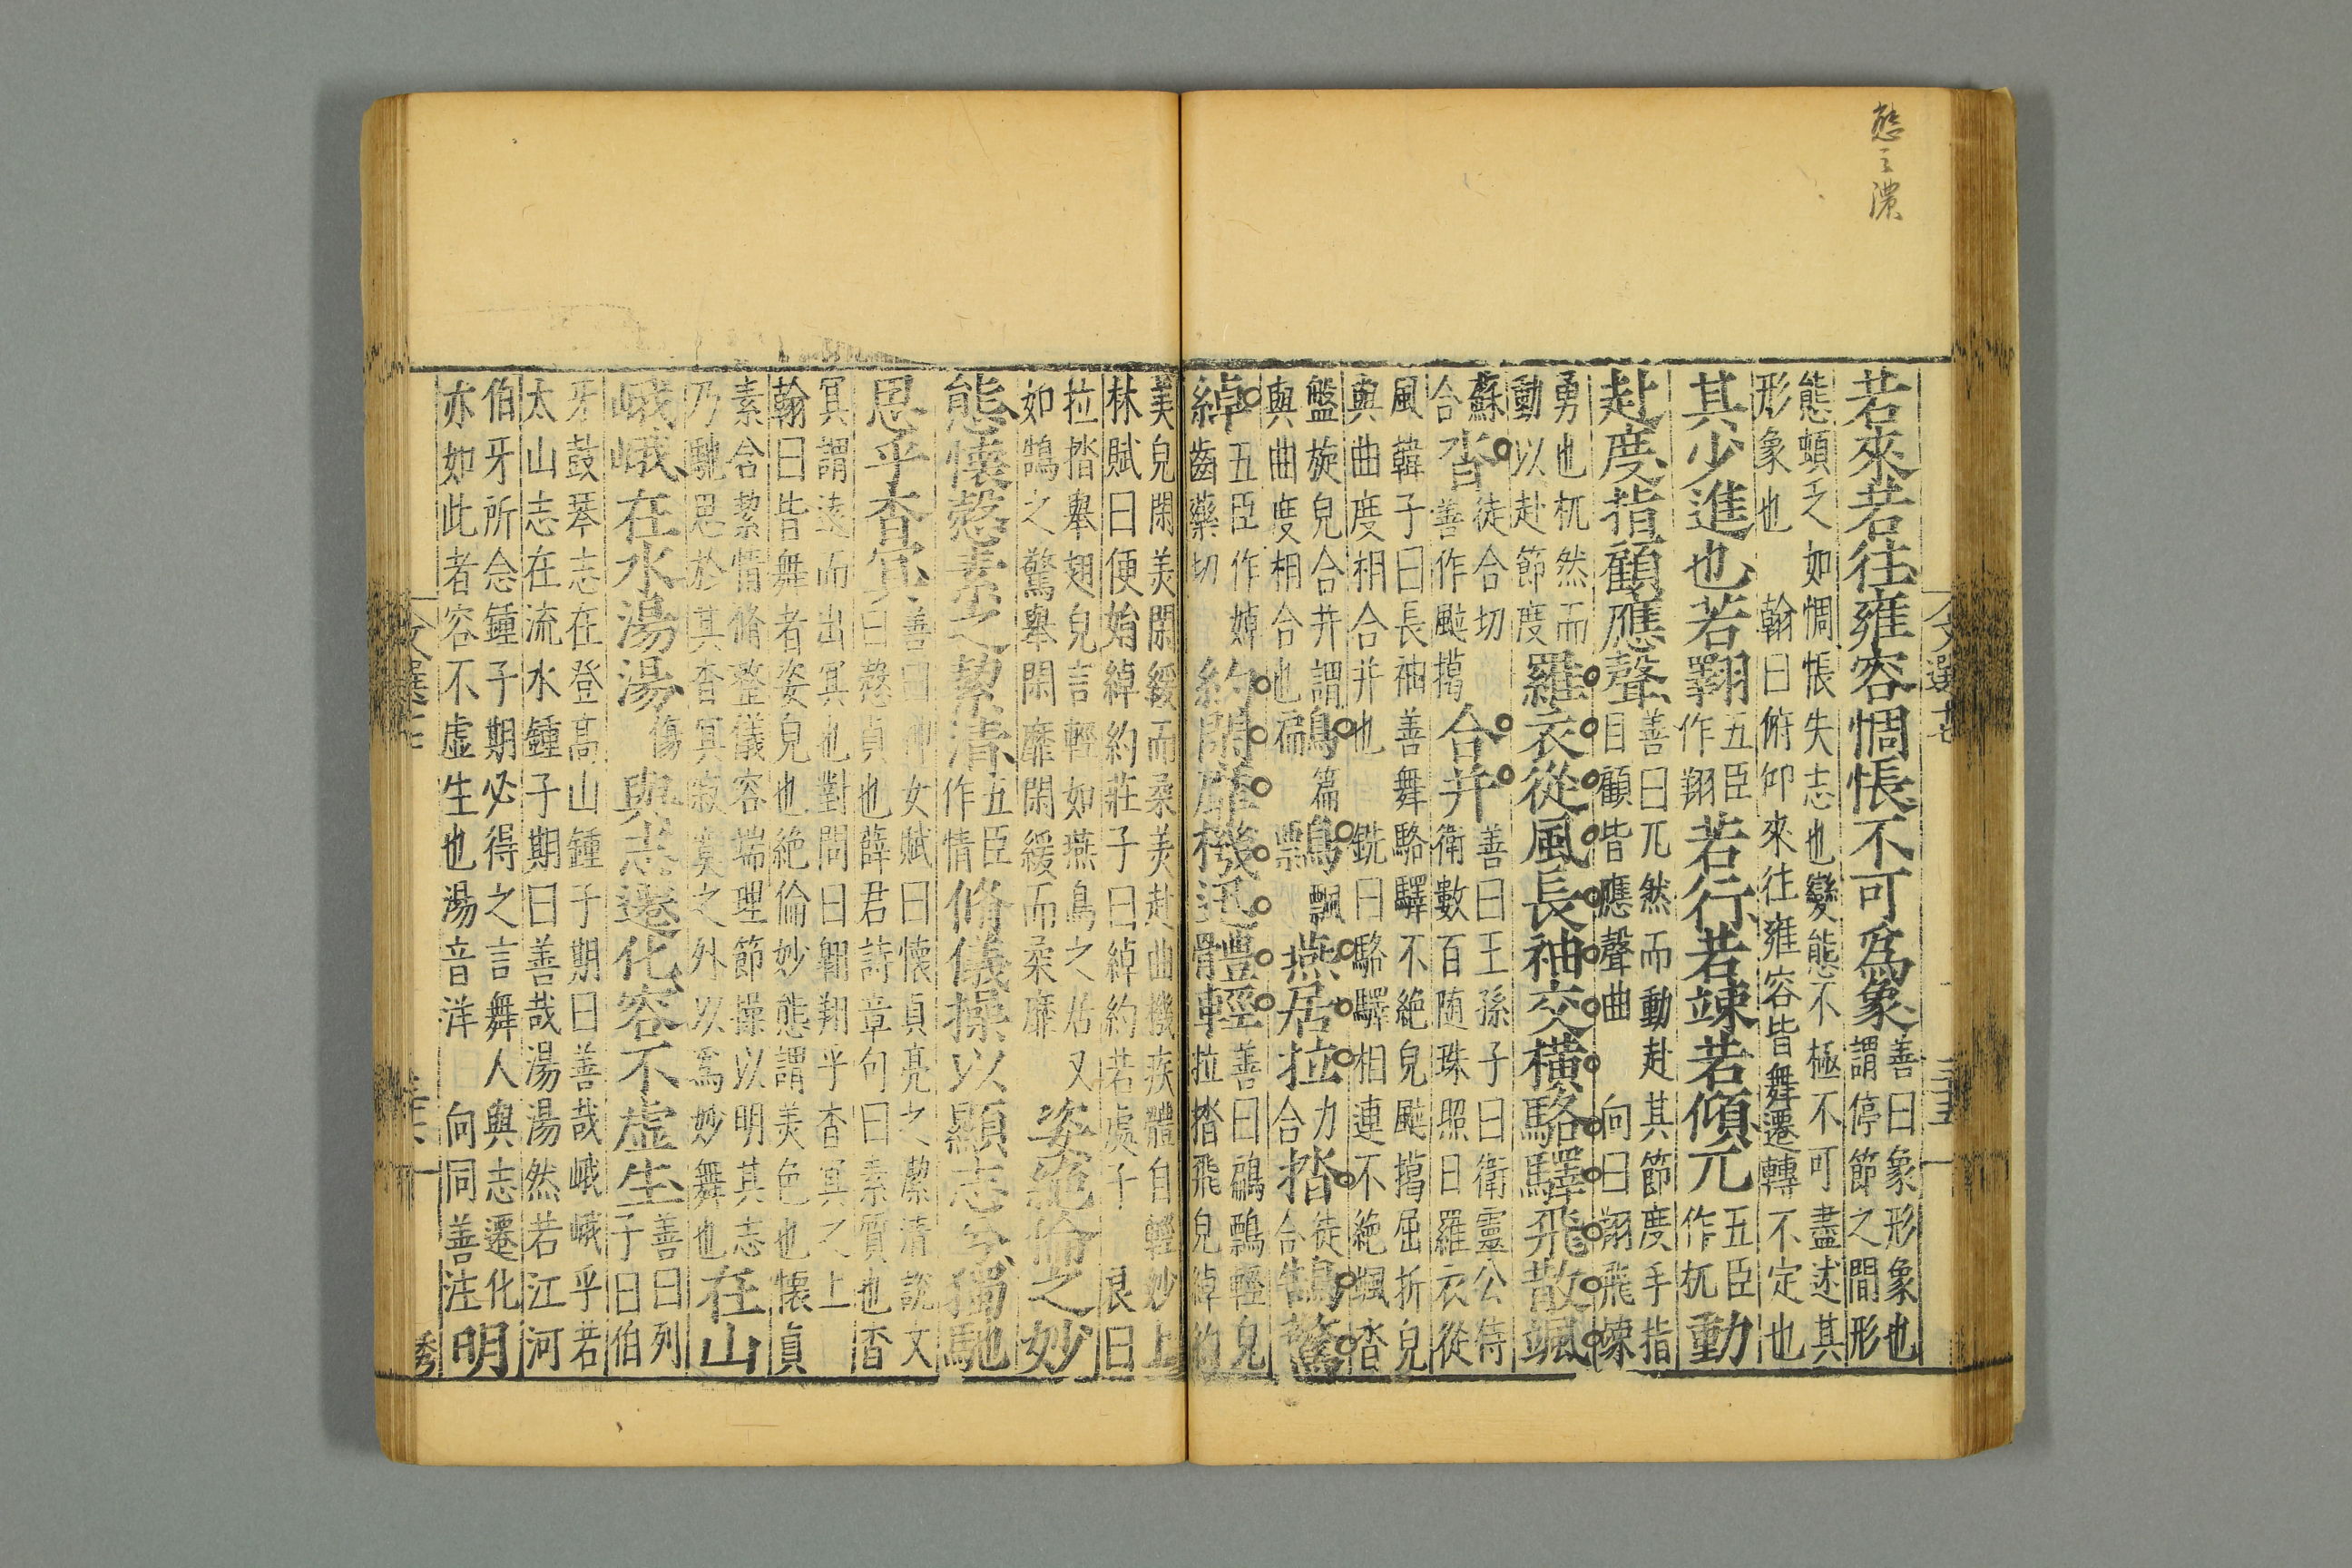 態之濃
若來若往雍容惆悵不可爲象善曰象形象也謂停節之間形
態頓乏如惆悵失志也變態不極不可盡述其形象也翰曰俯仰來往雍容皆舞遷轉不定也
其少進也若翔五臣作翔若行若竦若傾兀五臣作杌動
赴度指顧應聲善曰兀然而動赴其節度手指目顧皆應聲曲向曰翔飛竦
勇也杌然而動以赴節度羅衣從風長袖交橫駱驛飛散颯
蘇合沓徒合切善作颭擖合并善曰王孫子曰衛靈公侍衛數百随珠照日羅衣從
風韓子曰長袖善舞駱驛不絶皃颭擖屈折皃與曲度相合并也銑曰駱驛相連不絶颯沓
盤旋皃合并謂與曲度相合也鶣篇偏鷅飄票燕居拉力合㩉徒合鵠驚
綽五臣作婥齒藥切約閑靡機迅體輕善曰鶣鷅輕皃拉㩉飛皃綽約
美皃閑美閑緩而柔美赴曲機疾體自輕妙上林賦曰便始綽約莊子曰綽約若處子良曰
拉㩉舉翅皃言輕如燕鳥之居又如鵠之驚舉閑靡閑緩而柔靡姿絶倫之妙
態懷慤素之潔清五臣作情脩儀操以顯志兮獨馳
思乎杳冥善曰神女賦曰懷貞亮之潔清説文曰慤貞也薛君詩章句曰素質也杳
冥謂遠而出冥也對問曰翱翔乎杳冥之上翰曰皆舞者姿皃也絶倫妙態謂美色也懷貞
素合潔情脩整儀容端理節操以明其志乃馳思於其杳冥寂寞之外以爲妙舞也在山
峨峨在水湯湯傷與志遷化容不虛生善曰列子曰伯
牙鼓琴志在登高山鍾子期曰善哉峨峨乎若太山志在流水鍾子期曰善哉湯湯然若江河
伯牙所念鍾子期必得之言舞人與志遷化亦如此者容不虛生也湯音洋向同善注明